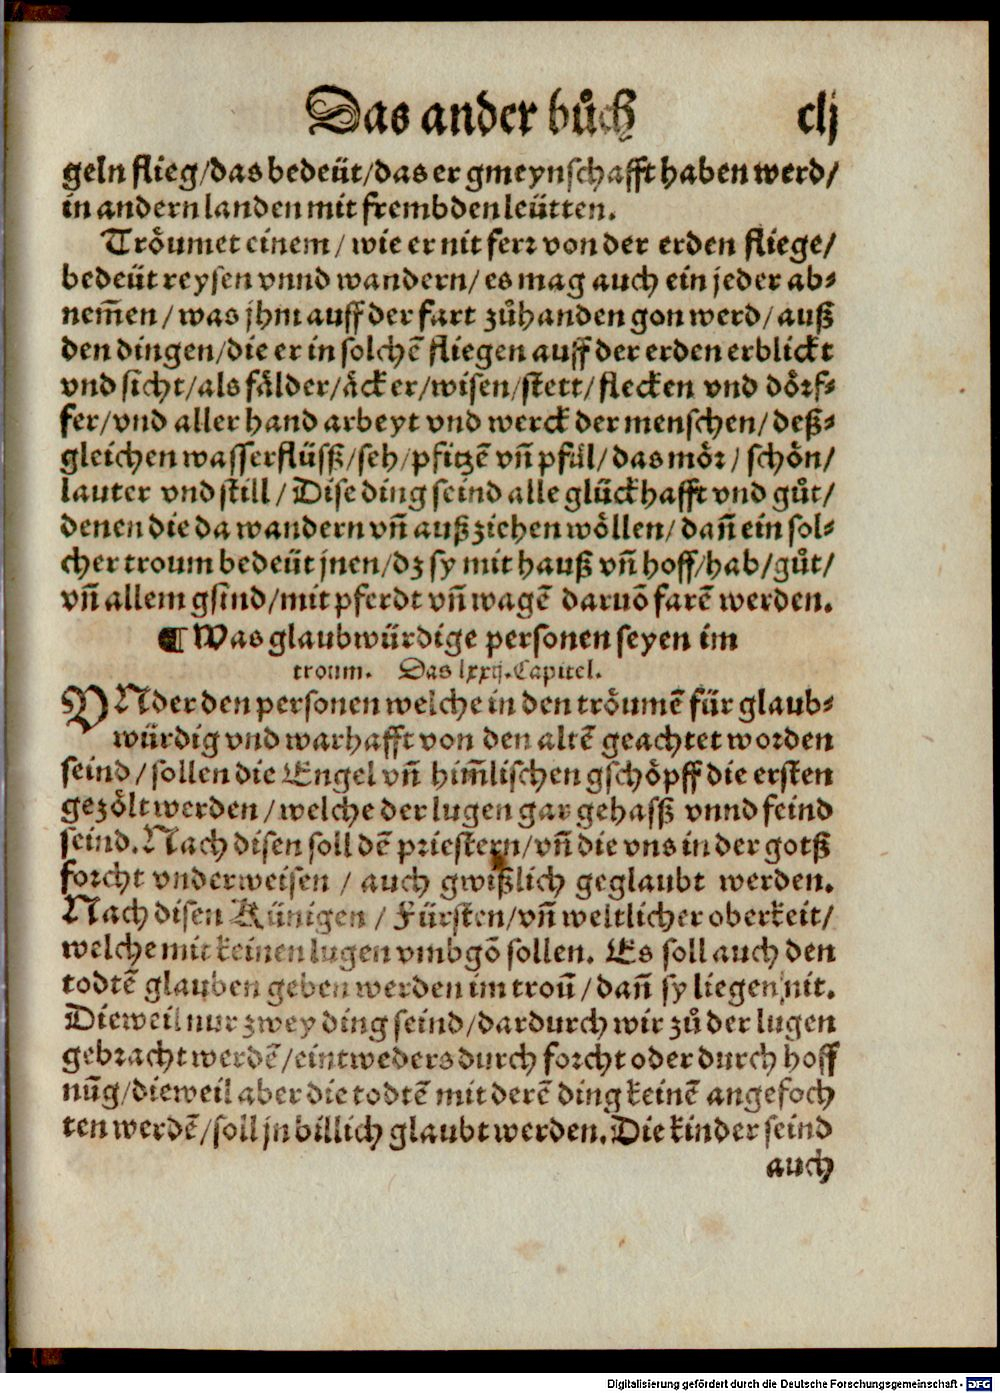 Das ander bůch clj
geln flieg/das bedeüt/das er gmeynschafft haben werd/
in andern landen mit frembden leütten.
Tröumet einem/ wie er nit ferꝛ von der erden fliege/
bedeüt reysen vnnd wandern/ es mag auch ein jeder ab⸗
nem̃en/ was jhm auff der fart zůhanden gon werd/ auß
den dingen/die er in solchẽ fliegen auff der erden erblickt
vnd sicht/als fälder/äcker/wisen/stett/flecken vnd dörf⸗
fer/vnd aller hand arbeyt vnd werck der menschen/ deß⸗
gleichen wasserflüsß/seh/pfitzẽ vñ pfůl/das möꝛ/ schön/
lauter vnd still/ Dise ding seind alle glückhafft vnd gůt/
denen die da wandern vñ außziehen wöllen/ dañ ein sol⸗
cher troum bedeüt jnen/dz sy mit hauß vñ hoff/hab/gůt/
vñ allem gsind/mit pferdt vñ wagẽ daruõ farẽ werden.
¶ Was glaubwürdige personen seyen im
troum. Das lxxij. Capitel.
VNder den personen welche in den tröumẽ für glaub⸗
würdig vnd warhafft von den altẽ geachtet woꝛden
seind/ sollen die Engel vñ him̃lischen gschöpff die ersten
gezölt werden/ welche der lugen gar gehasß vnnd feind
seind. Nach disen soll dẽ priestern/vñ die vns in der gotß
forcht vnderweisen / auch gwißlich geglaubt werden.
Nach disen Künigen / Fürsten/vñ weltlicher oberkeit/
welche mit keinen lugen vmbgõ sollen. Es soll auch den
todtẽ glauben geben werden im troũ/ dañ sy liegen nit.
Dieweil nur zwey ding seind/dardurch wir zů der lugen
gebꝛacht werdẽ/eintweders durch forcht oder durch hoff
nũg/dieweil aber die todtẽ mit derẽ ding keinẽ angefoch
ten werdẽ/soll jn billich glaubt werden. Die kinder seind
auch
Digitalisierung gefördert durch die Deutsche Forschungsgemeinschaft - DFG